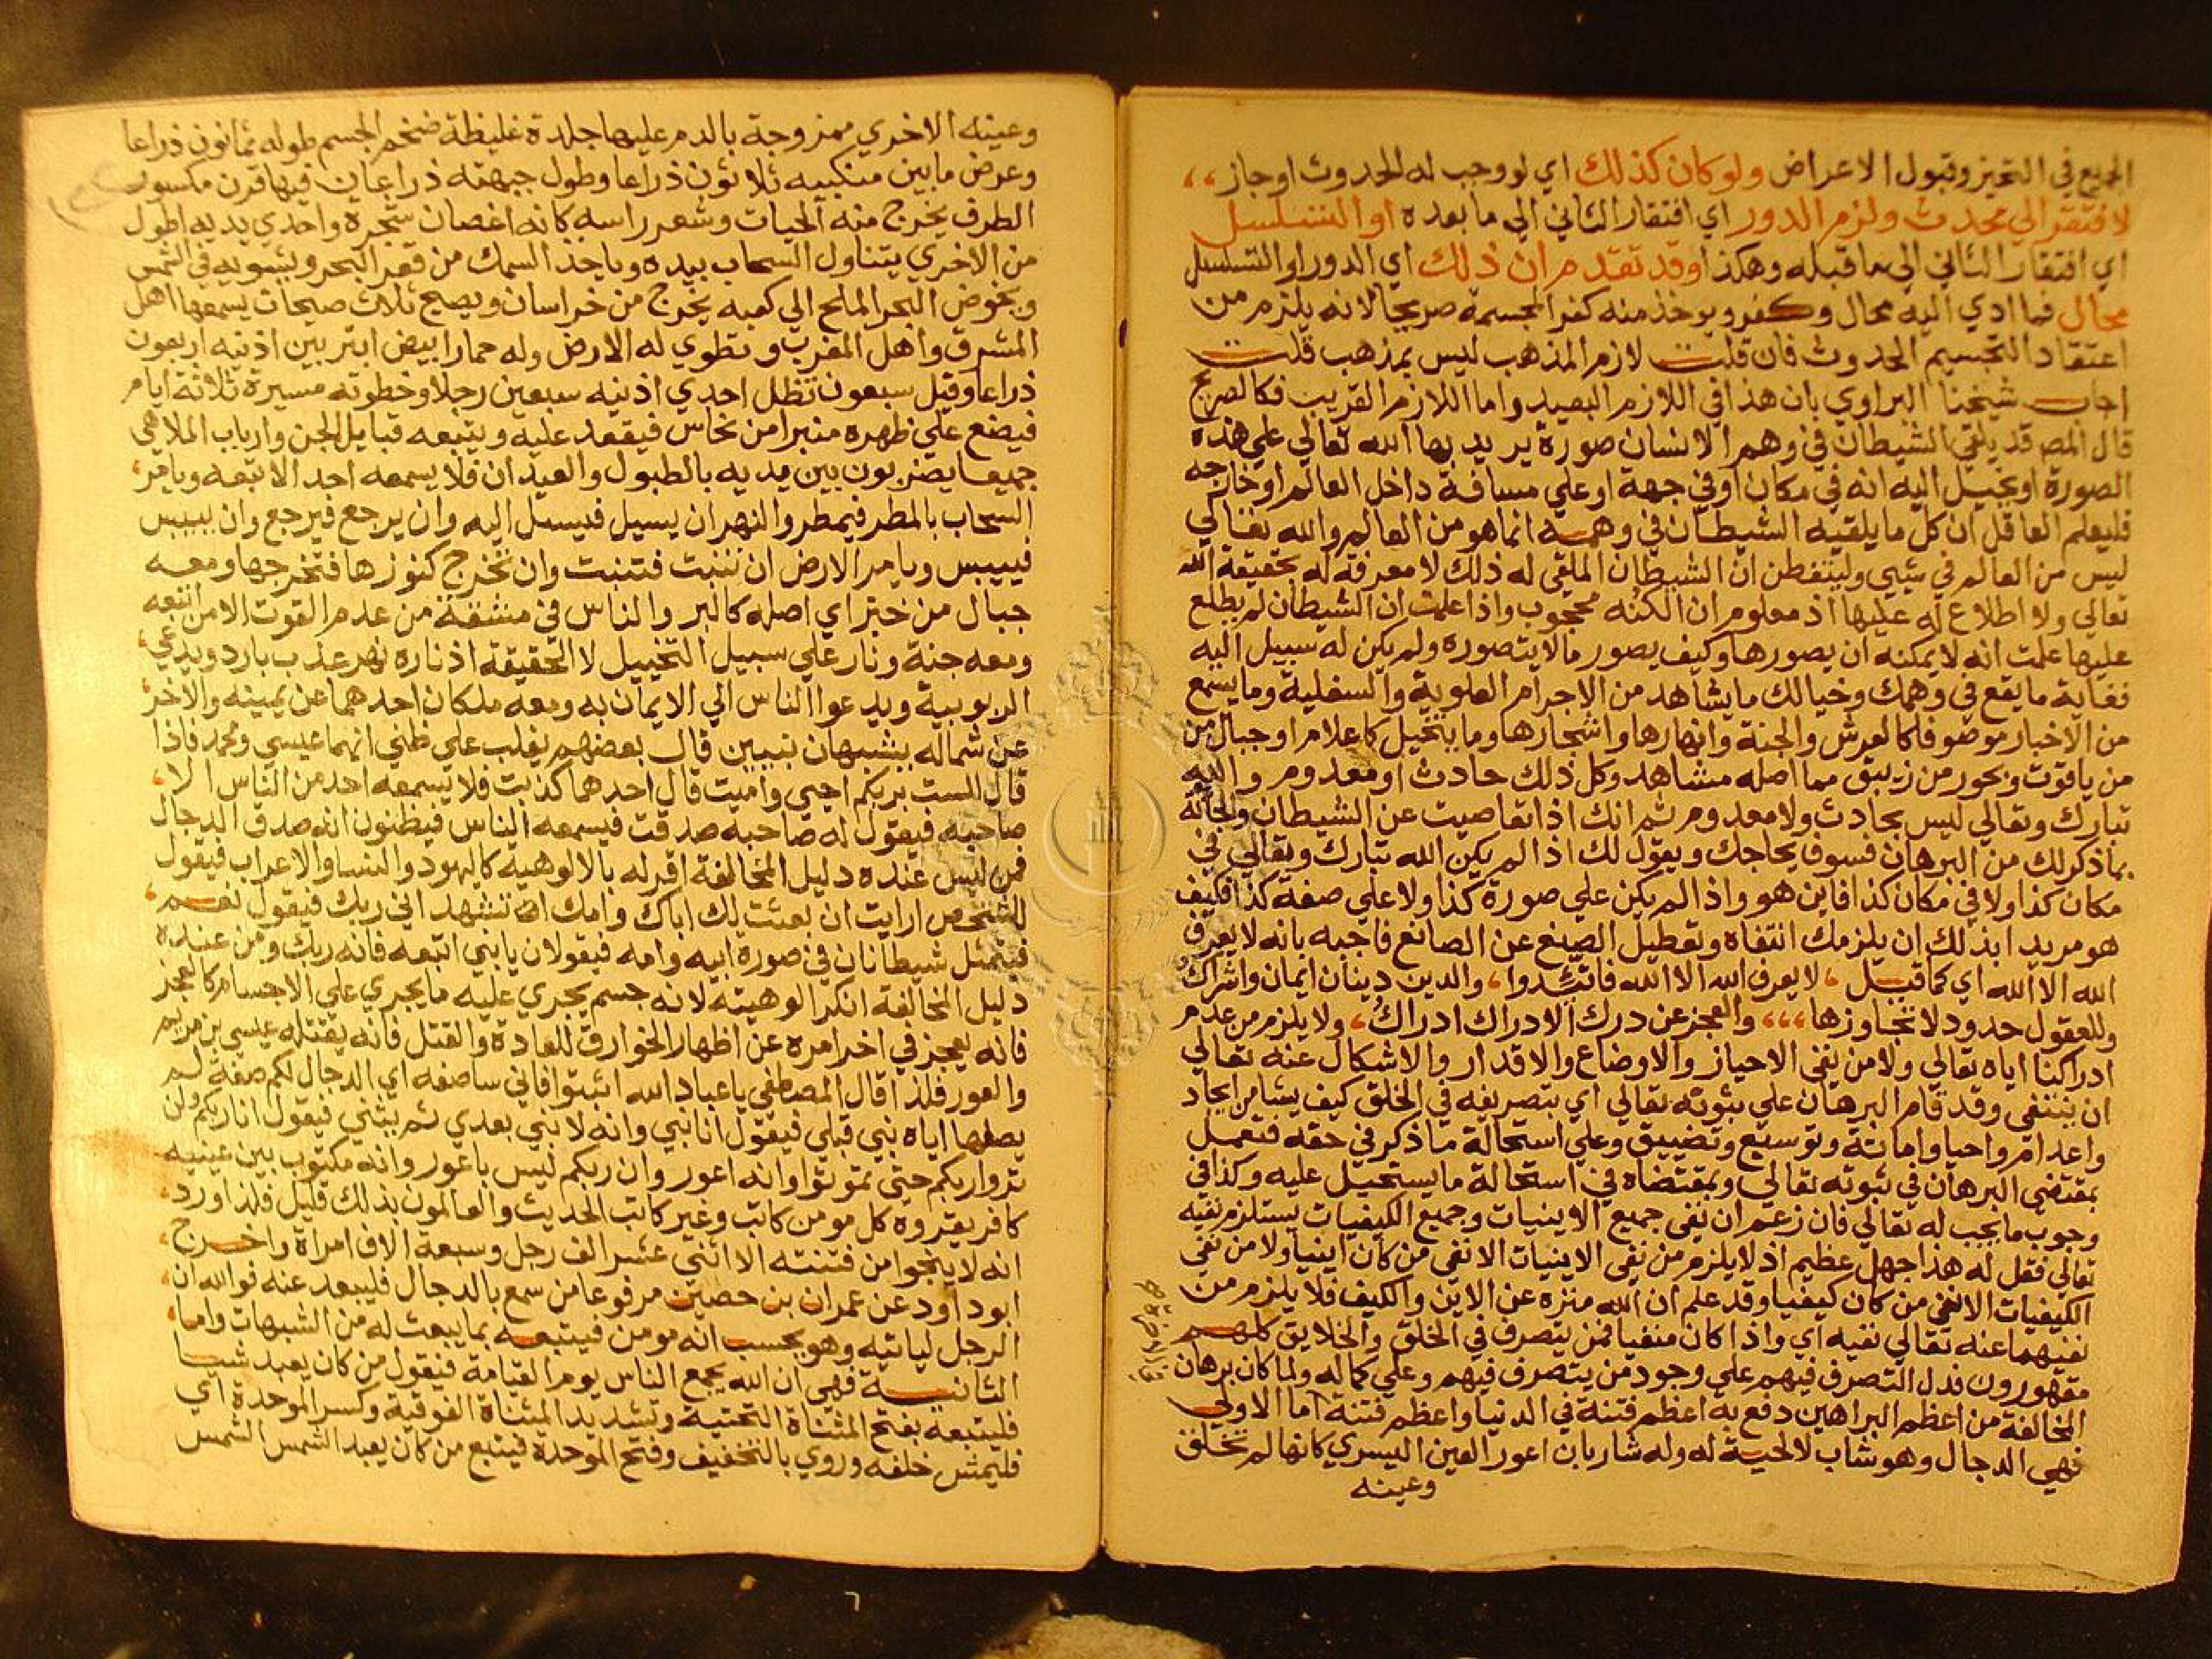 الجميع في التحيز وقبول الاعراض ولو كان كذلك اي لو وجب له الحدوث او جاز
لافتقر الي محدث ولزم الدور اي افتقار الثاني الي ما بعده او التسلسل
اي افتقار الثاني الي ما قبله وهكذا وقد تقدم ان ذلك اي الدور او التسلسل
محال فما ادي اليه محال وكفر ويوخذ منه كفر المجسمة صريحا لانه يلزم من
اعتقاد التجسيم الحدوث فان قلت لازم المذهب ليس بمذهب قلت
اجاب شيخنا البراوي بان هذا في اللازم البعيد واما اللازم القريب فكالصريح
قال المص قد يلقي الشيطان في وهم الانسان صورة يريد بها الله تعالي علي هذه
الصورة او يخيل اليه انه في مكان او في جهة او علي مسافة داخل العالم او خارجه
فليعلم العاقل ان كل ما يلقيه الشيطان في وهمه انما هو من العالم والله تعالي
ليس من العالم في شيي وليتفطن ان الشيطان الملقي له ذلك لا معرفة له بحقيقة الله
تعالي ولا اطلاع له عليها اذ معلوم ان الكنه محجوب واذا علمت ان الشيطان لم يطلع
عليها علمت انه لا يمكنه ان يصورها وكيف يصور ما لا يتصوره ولم يكن له سبيل اليه
فغاية ما يقع في وهمك وخيالك ما يشاهد من الاجرام العلوية والسفلية وما يسمع
من الاخبار موصوفا كالعرش والجنة وانهارها واشجارها وما يتخيل كاعلام او جبال من
من ياقوت وبحور من زيبق مما اصله مشاهد وكل ذلك حادث او معدوم والله
تبارك وتعالي ليس بحادث ولا معدوم ثم انك اذا تقاصيت عن الشيطان والجاته
بما ذكر لك من البرهان فسوف يحاجك ويقول لك اذا لم يكن الله تبارك وتعالي في
مكان كذا ولا في مكان كذا فاين هو واذا لم يكن علي صورة كذا ولا علي صفة كذا فكيف
هو مريدا بذلك ان يلزمك انتفاه وتعطيل الصنع عن الصانع فاجبه بانه لا يعرف
الله الا الله اي كما قيل لا يعرف الله الا الله فاتئدوا والدين دينان ايمان واشراك
وللعقول حدود لا تجاوزها والعجز عن درك الادراك ادراك ولا يلزم من عدم
ادراكنا اياه تعالي ولا من نفي الاحياز والاوضاع والاقدار والاشكال عنه تعالي
ان ينتفي وقد قام البرهان علي ثبوته تعالي اي بتصريفه في الخلق كيف يشا من ايجاد
واعدام واحيا واماتة وتوسيع وتضييق وعلي استحالة ما ذكر في حقه فتعمل
بمقتضي البرهان في ثبوته تعالي وبمقتضاه في استحالة ما يستحيل عليه وكذا في
وجوب ما يجب له تعالي فان زعم ان نفي جميع الاينيات وجميع الكيفيات يستلزم نفيه
تعالي فقل له هذا جهل عظيم اذ لا يلزم من نفي الاينيات الا نفي من كان اينيا ولا من نفي
الكيفيات الا نفي من كان كيفيا وقد علم ان الله منزه عن الاين والكيف فلا يلزم من
نفيهما عنه تعالي نفيه اي واذا كان منفيا فمن يتصرف في الخلق والخلايق كلهم
مقهورون فدل التصرف فيهم علي وجود من يتصرف فيهم وعلي كماله ولما كان برهان
المخالفة من اعظم البراهين دفع به اعظم فتنة في الدنيا واعظم فتنة اما الاولي
فهي الدجال وهو شاب لا لحية له وله شاربان اعور العين اليسري كانها لم تخلق
وعينه
وعينه الاخري ممزوجة بالدم عليها جلدة غليظة ضخم الجسم طوله ثمانون ذراعا
وعرض ما بين منكبيه ثلاثون ذراعا وطول جبهته ذراعان فيها قرن مكسور
الطرف يخرج منه الحيات وشعر راسه كانه اغصان شجرة واحدي يديه اطول
من الاخري يتناول السحاب بيده وياخذ السمك من قعر البحر ويشويه في الشمس
ويخوض البحر الملح الي كعبه يخرج من خراسان ويصيح ثلاث صيحات يسمعها اهل
المشرق واهل المغرب وتطوي له الارض وله حمار ابيض ابتر بين اذنيه اربعون
ذراعا وقيل سبعون تظل احدي اذنيه سبعين رجلا وخطوته مسيرة ثلاثة ايام
فيضع علي ظهره منبرا من نحاس فيقعد عليه ويتبعه قبايل الجن وارباب الملاهي
جميعا يضربون بين يديه بالطبول والعيدان فلا يسمعه احد الا تبعه ويامر
السحاب بالمطر فيمطر والنهر ان يسيل فيسيل اليه وان يرجع فيرجع وان ييبس
فييبس ويامر الارض ان تنبت فتنبت وان تخرج كنوزها فتخرجها ومعه
جبال من خبز اي اصله كالبر والناس في مشقة من عدم القوت الا من اتبعه
ومعه جنة ونار علي سبيل التخييل لا الحقيقة اذ ناره نهر عذب بارد ويدعي
الربوبية ويدعوا الناس الي الايمان به ومعه ملكان احدهما عن يمينه والاخر
عن شماله يشبهان نبيين قال بعضهم يغلب علي ظني انهما عيسي ومحمد فاذا
قال الست بربكم احيي واميت قال احدهما كذبت فلا يسمعه احد من الناس الا
صاحبه فيقول له صاحبه صدقت فيسمعه الناس فيظنون انه صدق الدجال
فمن ليس عنده دليل المخالفة اقر له بالالوهية كاليهود والنسا والاعراب فيقول
للشخص ارايت ان بعثت لك اباك وامك تشهد اني ربك فيقول نعم
فيتمثل شيطانان في صورة ابيه وامه فيقولان يا بني اتبعه فانه ربك ومن عنده
دليل المخالفة انكر الوهيته لانه جسم يجري عليه ما يجري علي الاجسام كالعجز
فانه يعجز في اخر امره عن اظهار الخوارق للعادة والقتل فانه يقتله عيسي بن مريم
والعور فلذا قال المصطفي يا عباد الله اثبتوا فاني ساصفه اي الدجال لكم صفة لم
يصفها اياه نبي قبلي فيقول انا نبي وانه لا نبي بعدي ثم يثني فيقول انا ربكم ولن
تروا ربكم حتي تموتوا وانه اعور وان ربكم ليس باعور وانه مكتوب بين عينيه
كافر يقروه كل مومن كاتب وغير كاتب الحديث والعالمون بذلك قليل فلذا ورد
انه لا ينجوا من فتنته الا اثني عشر الف رجل وسبعة الاف امراة واخرج
ابو داود عن عمران بن حصين مرفوعا من سمع بالدجال فليبعد عنه فوالله ان
الرجل لياتيه وهو يحسب انه مومن فيتبعه بما يبعث له من الشبهات واما
الثانية فهي ان الله يجمع الناس يوم القيامة فيقول من كان يعبد شييا
فليتبعه بفتح المثناة التحتية وتشديد المثناة الفوقية وكسر الموحدة اي
فليمش خلفه وروي بالتخفيف وفتح الموحدة فيتبع من كان يعبد الشمس الشمس